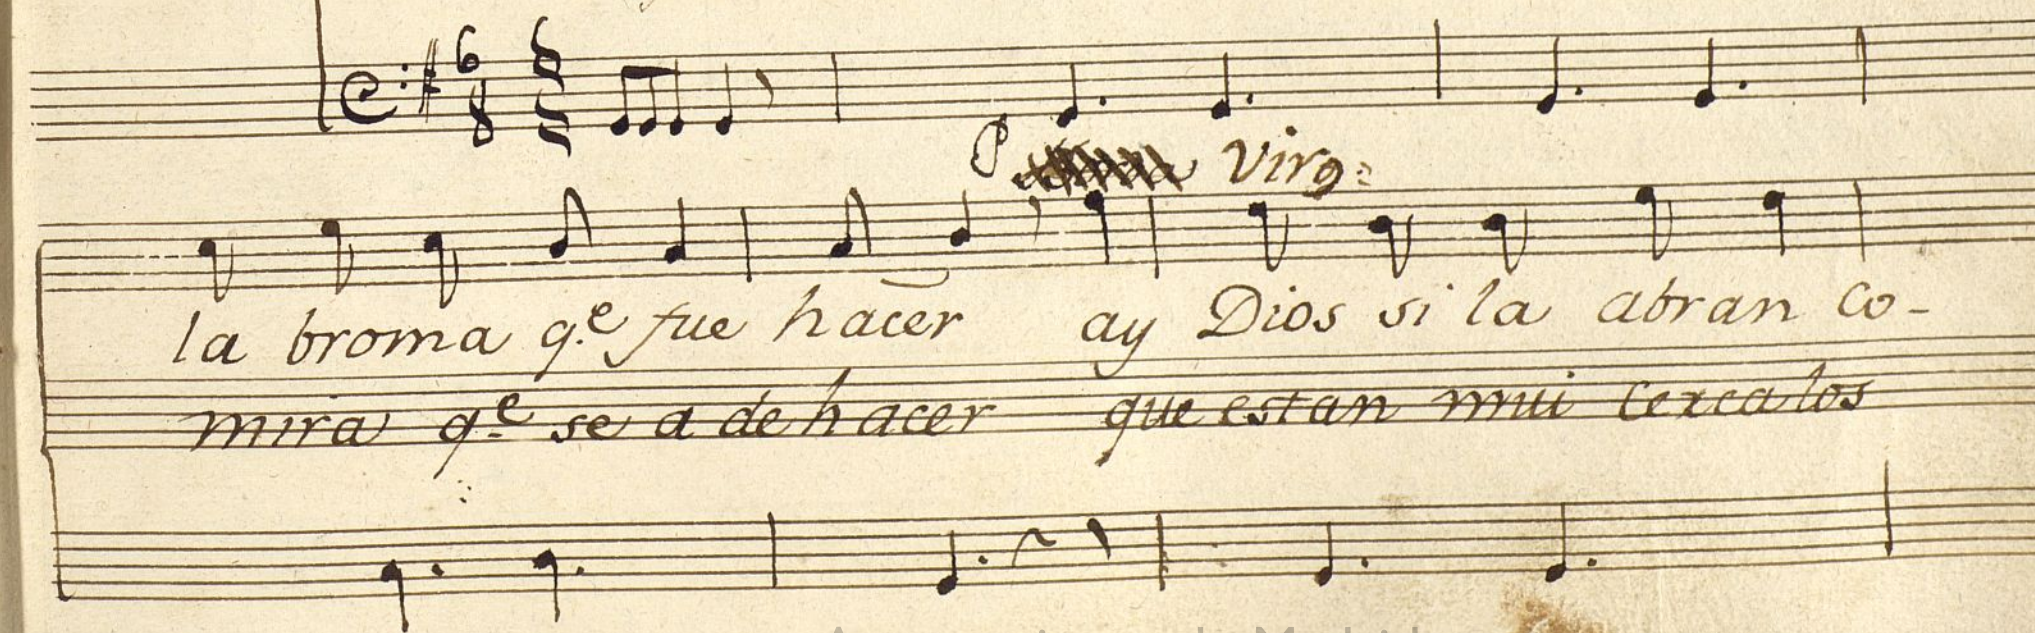 6
8
P Virg:
la broma q.e fue hacer ay Dios si la abran co-
mira q.e se a de hacer que estan mui cerca los